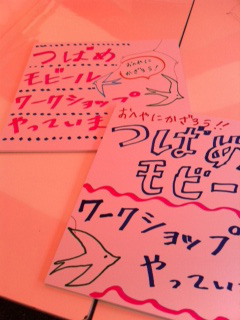 つばめ
モビール
おへやにかざろう!
ワークショップ
やっていま
おへやにかざろう!!
つばめ
モビー
ワークショップ
やってい